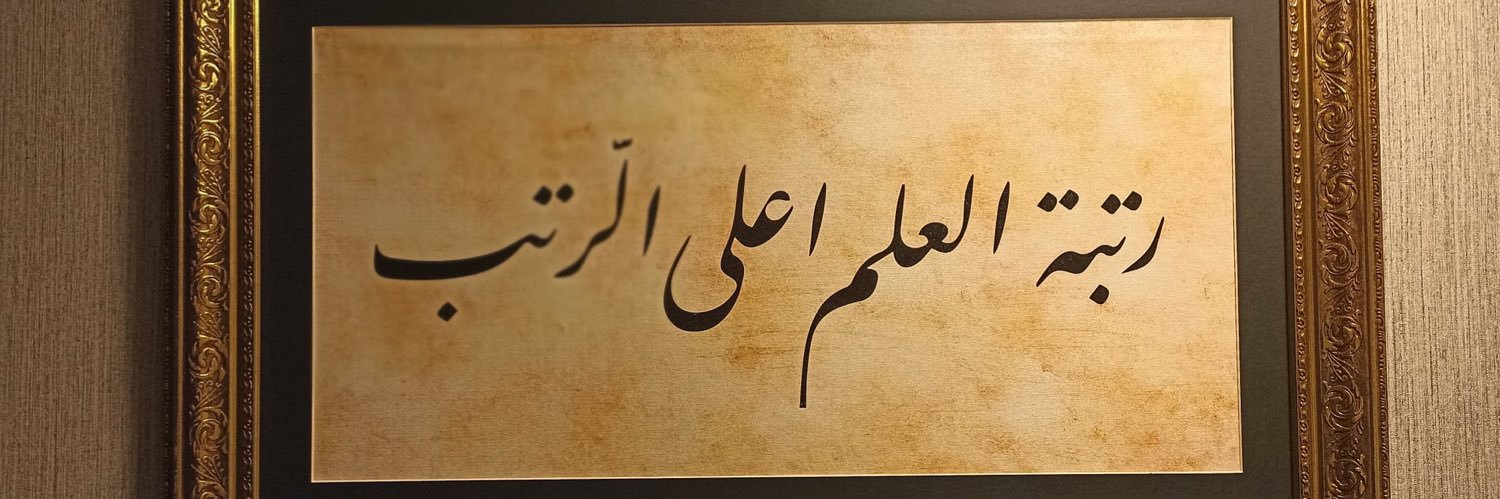 رتبة العلم اعلى الرّتب